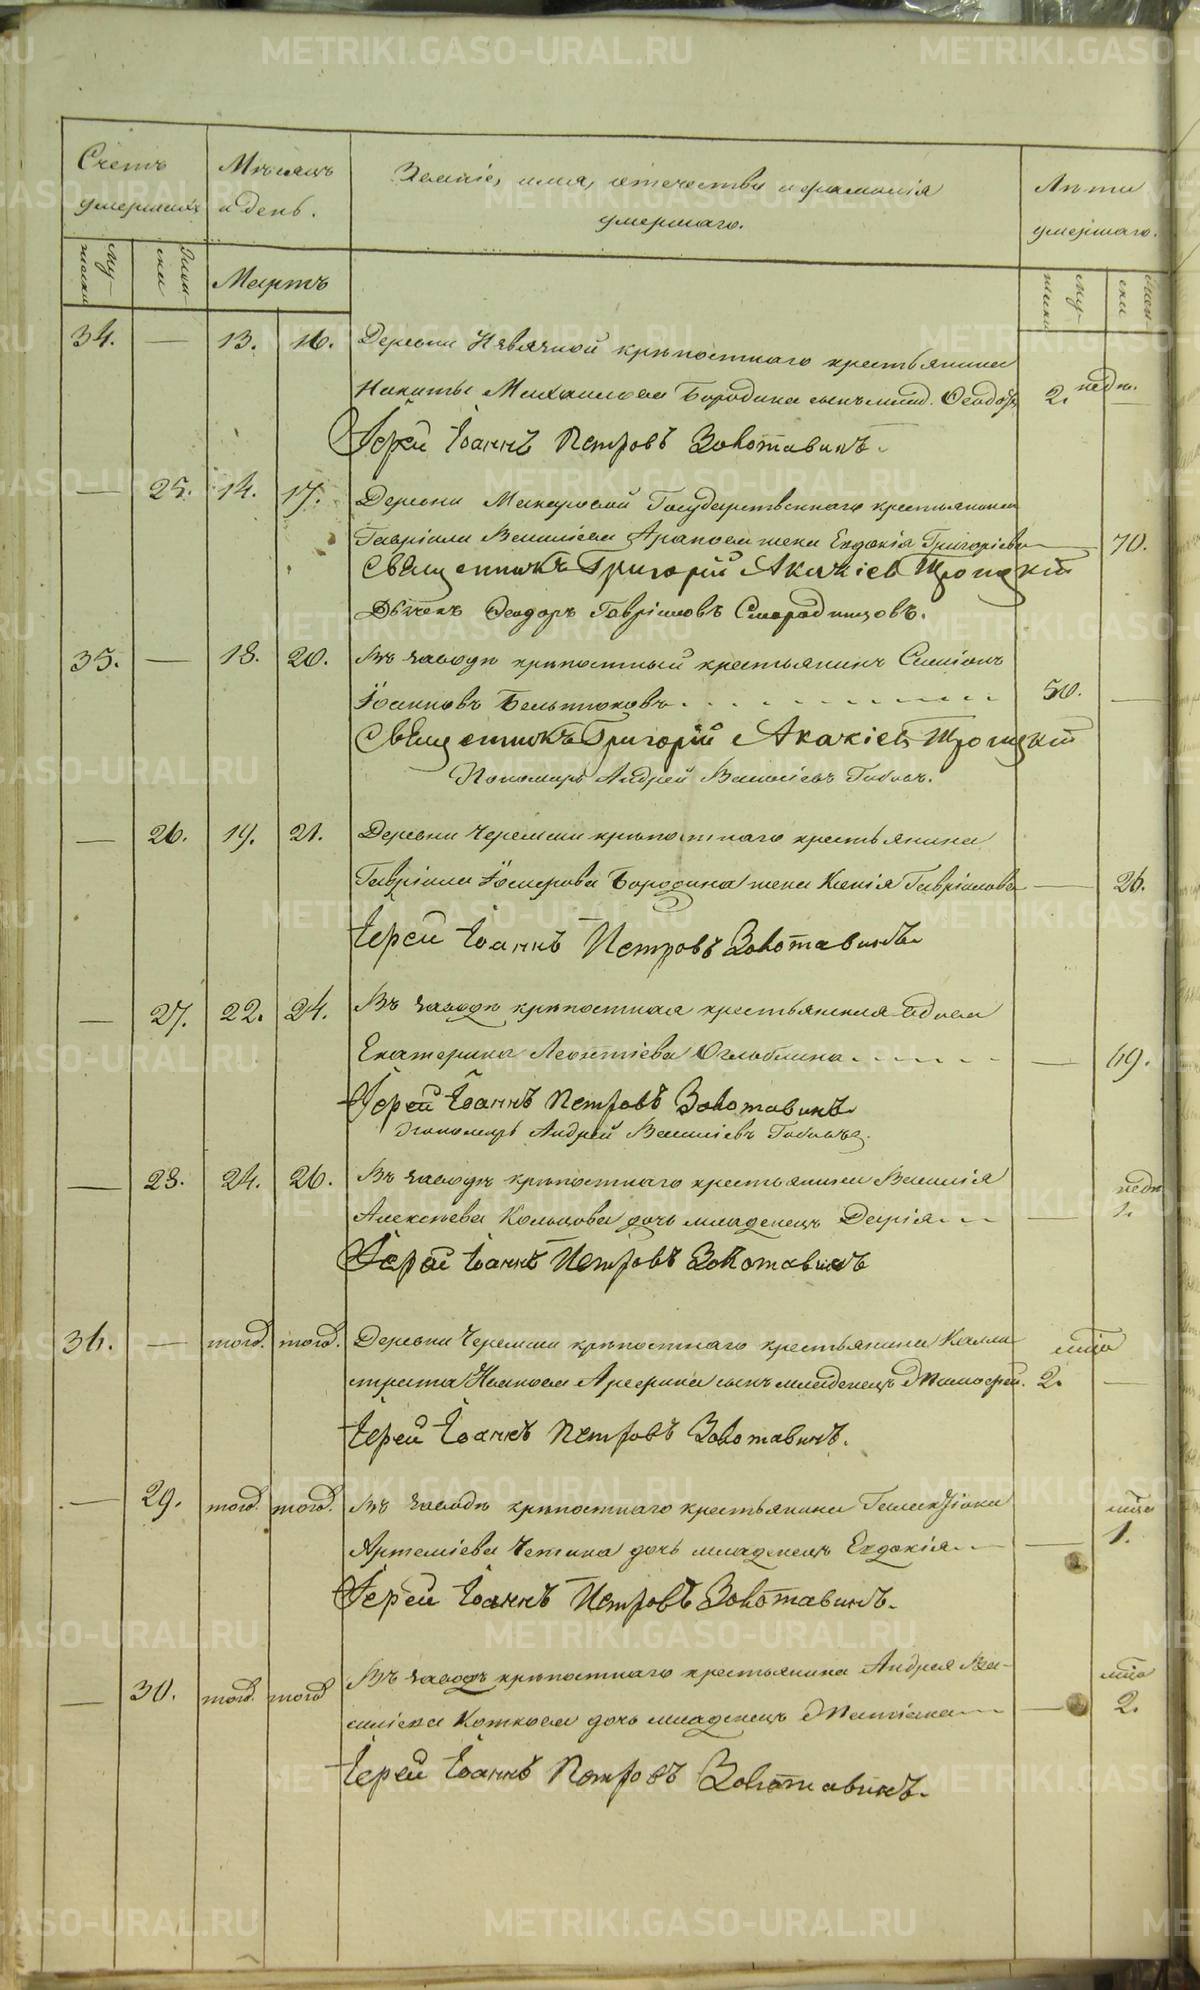 Счетъ умершихъ
Мѣсяцъ и день.
Званіе, имя, отечество и фамилія
умершаго.
Лѣта
умершаго.
Му-
жески
Жен-
ски
Мартъ
Му-
жески
Жен-
ски
34. — 13. 16. Деревни Невячной крѣпостнаго крестьянина
Никиты Михаилова Бородина сынъ млад. Ѳеодоръ 2. недѣ. —
Іерей Іоаннъ Петровъ Золотавинъ.
— 25. 14. 17. Деревни Макаровой Государственнаго крестьянина
Гавріила Василіева Арапова жена Евдокія Григоріева — 70.
Священникъ Григорій Акакіевъ Троицкій
Дьячекъ Ѳеодоръ Гавріиловъ Смородинцовъ.
35. — 18. 20. Въ заводѣ крѣпостный крестьянинъ Симіонъ
Іоанновъ Бельтюковъ. 50. —
Священникъ Григорій Акакіевъ Троицкій
Пономарь Андрей Василіевъ
— 26. 19. 21. Деревни Черемши крѣпостнаго крестьянина
Гавріила Бородина жена Ксенія Гавріилова — 26.
Іерей Іоаннъ Петровъ Золотавинъ.
— 27. 22. 24. Въ заводѣ крѣпостная крестьянская вдова
Екатерина Леонтіева Оглоблина — 69.
Іерей Іоаннъ Петровъ Золотавинъ.
Пономарь Андрей Василіевъ
— 28. 24. 26. Въ заводѣ крѣпостнаго крестьянина Василія
Алексѣева Кольцова дочь младенецъ Дарія — недѣ. 1.
Іерей Іоаннъ Петровъ Золотавинъ
36. — тогд. тогд. Деревни Черемши крѣпостнаго крестьянина Калли-
страта Иванова Аристина сынъ младенецъ Тимофей. мца 2. —
Іерей Іоаннъ Петровъ Золотавинъ.
— 29. тогд. тогд. Въ заводѣ крѣпостнаго крестьянина Галактіона
Артеміева Четина дочь младенецъ Евдокія — мца 1.
Іерей Іоаннъ Петровъ Золотавинъ.
— 30. тогд. тогд Въ заводѣ крѣпостнаго крестьянина Андрея Ва-
силіева Коткова дочь младенецъ Матіана — мца 2.
Іерей Іоаннъ Петровъ Золотавинъ.
METRIKI.GASO-URAL.RU